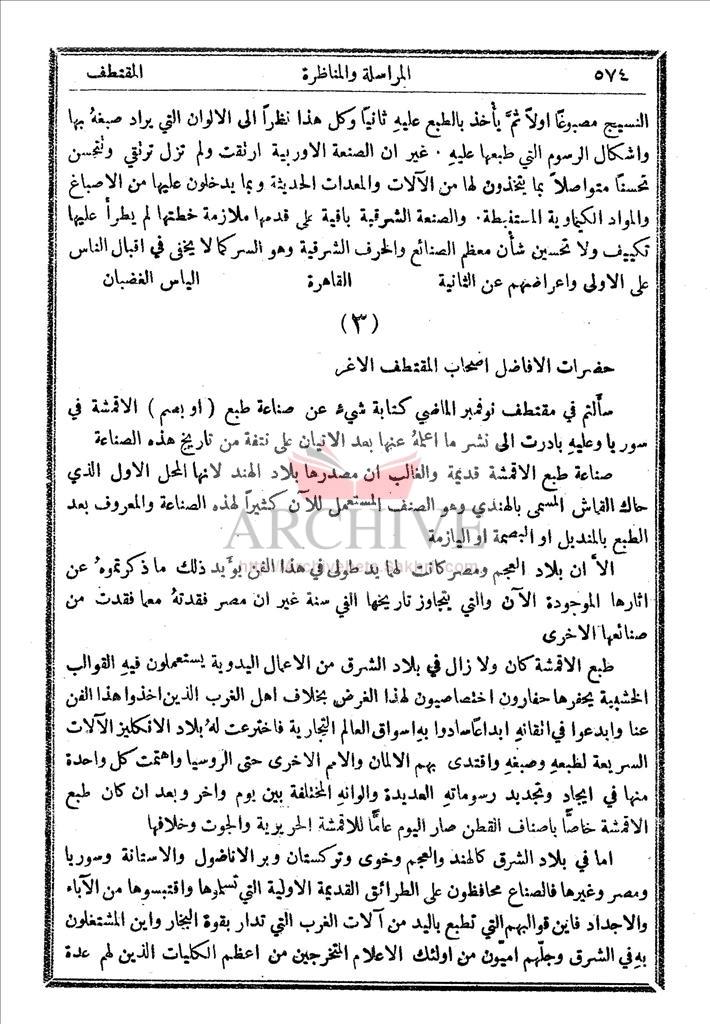 ٥٧٤ المراسلة والمناظرة المقتطف
النسيج مصبوغًا اولاً ثمَّ يأخذ بالطبع عليهِ ثانيًا وكل هذا نظراً الى الالوان التي يراد صبغهُ بها
واشكال الرسوم التي طبعها عليهِ ٠ غير ان الصنعة الاوربية ارتقت ولم تزل ترتقي وتتحسن
تحسنًا متواصلاً بما يتخذون لها من الآلات والمعدات الحديثة وبما يدخلون عليها من الاصباغ
والمواد الكيماوية المستنبطة ٠ والصنعة الشرقية باقية على قدمها ملازمة خطتها لم يطرأ عليها
تكييف ولا تحسين شأن معظم الصنائع والحرف الشرقية وهو السر كما لا يخفى في اقبال الناس
على الاولى واعراضهم عن الثانية القاهرة الياس الغضبان
(٣)
حضرات الافاضل اصحاب المقتطف الاغر
سألتم في مقتطف نوفمبر الماضي كتابة شيءٍ عن صناعة طبع ( او بصم ) الاقمشة في
سوريا وعليهِ بادرت الى نشر ما اعلمهُ عنها بعد الاتيان على نتفة من تاريخ هذه الصناعة
صناعة طبع الاقمشة قديمة والغالب ان مصدرها بلاد الهند لانها المحل الاول الذي
حاك القماش المسمى بالهندي وهو الصنف المستعمل للآن كثيراً لهذه الصناعة والمعروف بعد
الطبع بالمنديل او البصمة او اليازمة
الاَّ ان بلاد العجم ومصر كانت لهما يد طولى في هذا الفن يؤيد ذلك ما ذكرتموهُ عن
اثارها الموجودة الآن والتي يتجاوز تاريخها الفي سنة غير ان مصر فقدتهُ معما فقدت من
صنائعها الاخرى
طبع الاقمشة كان ولا زال في بلاد الشرق من الاعمال اليدوية يستعملون فيهِ القوالب
الخشبية يحفرها حفارون اختصاصيون لهذا الغرض بخلاف اهل الغرب الذين اخذوا هذا الفن
عنا وابدعوا في اتقانهِ ابداعًا سادوا بهِ اسواق العالم التجارية فاخترعت لهُ بلاد الانكليز الآلات
السريعة لطبعهِ وصبغهِ واقتدى بهم الالمان والامم الاخرى حتى الروسيا واهتمت كل واحدة
منها في ايجاد وتجديد رسوماتهِ العديدة والوانهِ المختلفة بين يوم واخر وبعد ان كان طبع
الاقمشة خاصًّا باصناف القطن صار اليوم عامًّا للاقمشة الحريرية والجوت وخلافها
اما في بلاد الشرق كالهند والعجم وخوى وتركستان وبر الاناضول والاستانة وسوريا
ومصر وغيرها فالصناع محافظون على الطرائق القديمة الاولية التي تسلموها واقتبسوها من الآباء
والاجداد فاين قوالبهم التي تطبع باليد من آلات الغرب التي تدار بقوة البخار واين المشتغلون
بهِ في الشرق وجلّهم اميّون من اولئك الاعلام المتخرجين من اعظم الكليات الذين لهم عدة
ARCHIVE